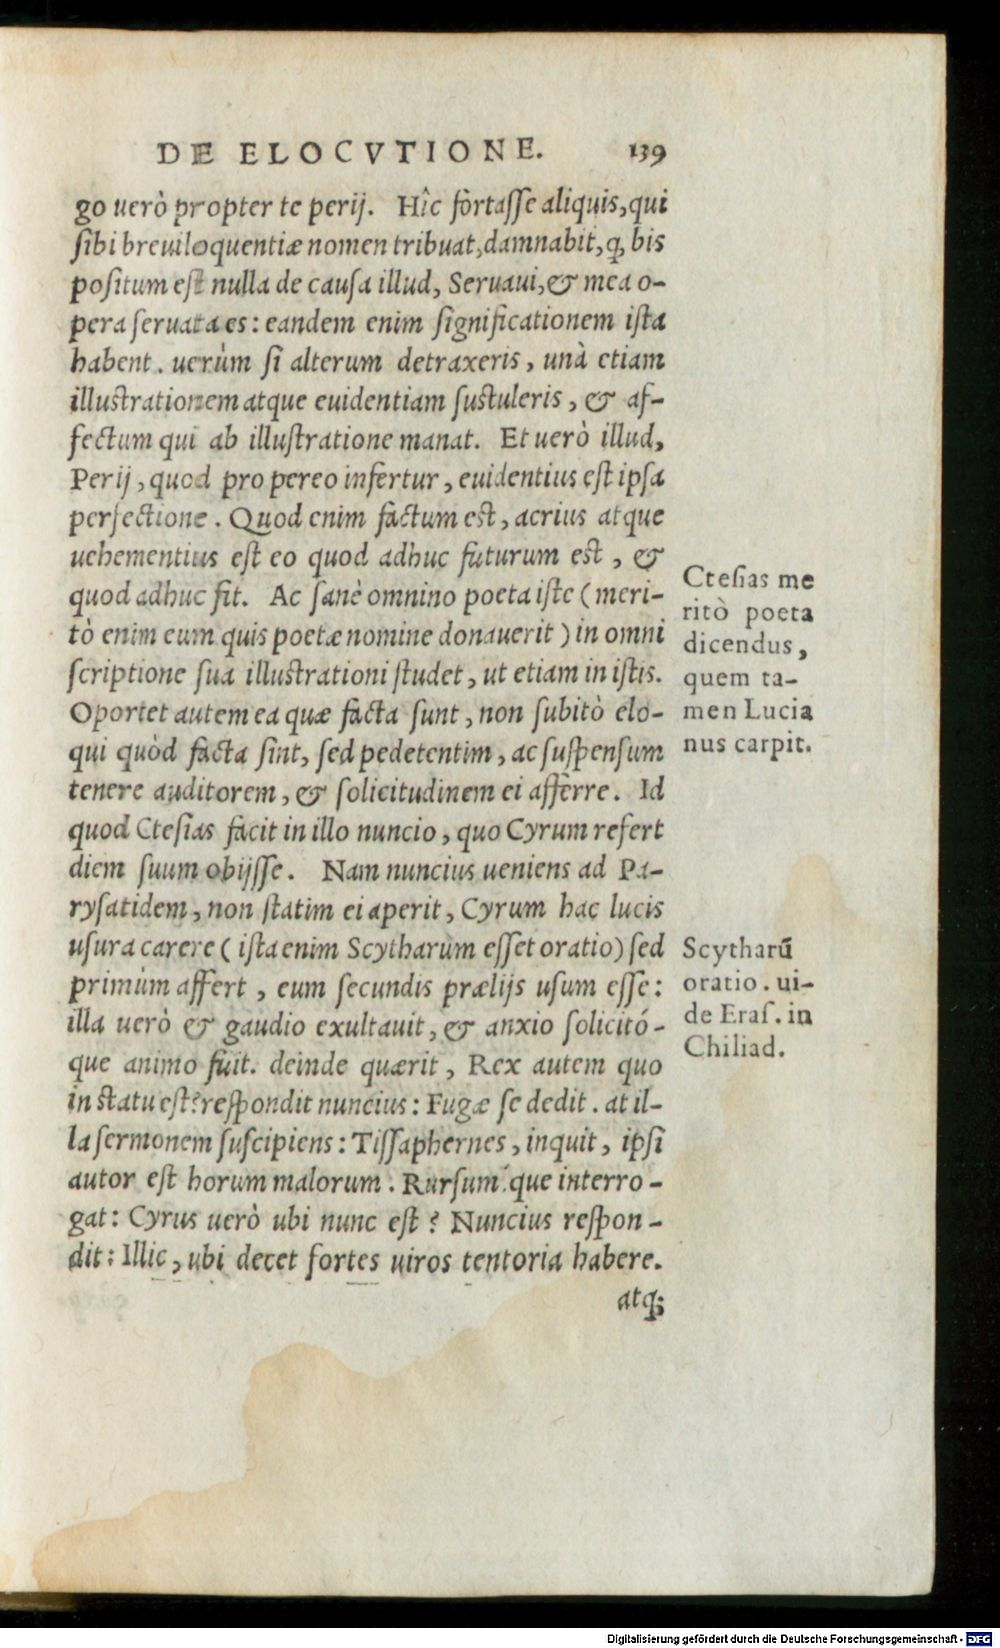 DE ELOCVTIONE. 139
go uerò propter te perij. Hîc fortasse aliquis, qui
sibi breuiloquentiæ nomen tribuat, damnabit, ꝙ bis
positum est nulla de causa illud, Seruaui, & mea o-
pera seruata es: eandem enim significationem ista
habent. uerùm si alterum detraxeris, unà etiam
illustrationem atque euidentiam sustuleris, & af-
fectum qui ab illustratione manat. Et uerò illud,
Perij, quod pro pereo infertur, euidentius est ipsa
perfectione. Quod enim factum est, acrius atque
uehementius est eo quod adhuc futurum est, &
quod adhuc fit. Ac sanè omnino poeta iste (meri-
tò enim eum quis poetæ nomine donauerit) in omni
scriptione sua illustrationi studet, ut etiam in istis.
Oportet autem ea quæ facta sunt, non subitò elo-
qui quòd facta sint, sed pedetentim, ac suspensum
tenere auditorem, & solicitudinem ei afferre. Id
quod Ctesias facit in illo nuncio, quo Cyrum refert
diem suum obijsse. Nam nuncius ueniens ad Pa-
rysatidem, non statim ei aperit, Cyrum hac lucis
usura carere (ista enim Scytharum esset oratio) sed
primùm affert, eum secundis prælijs usum esse:
illa uerò & gaudio exultauit, & anxio solicitó-
que animo fuit. deinde quærit, Rex autem quo
in statu est? respondit nuncius: Fugæ se dedit. at il-
la sermonem suscipiens: Tissaphernes, inquit, ipsi
autor est horum malorum. Rursum´que interro-
gat: Cyrus uerò ubi nunc est? Nuncius respon-
dit: Illic, ubi decet fortes uiros tentoria habere.
atq;
Ctesias me
ritò poeta
dicendus,
quem ta-
men Lucia
nus carpit.
Scytharũ
oratio. ui-
de Eras. in
Chiliad.
Digitalisierung gefördert durch die Deutsche Forschungsgemeinschaft - DFG